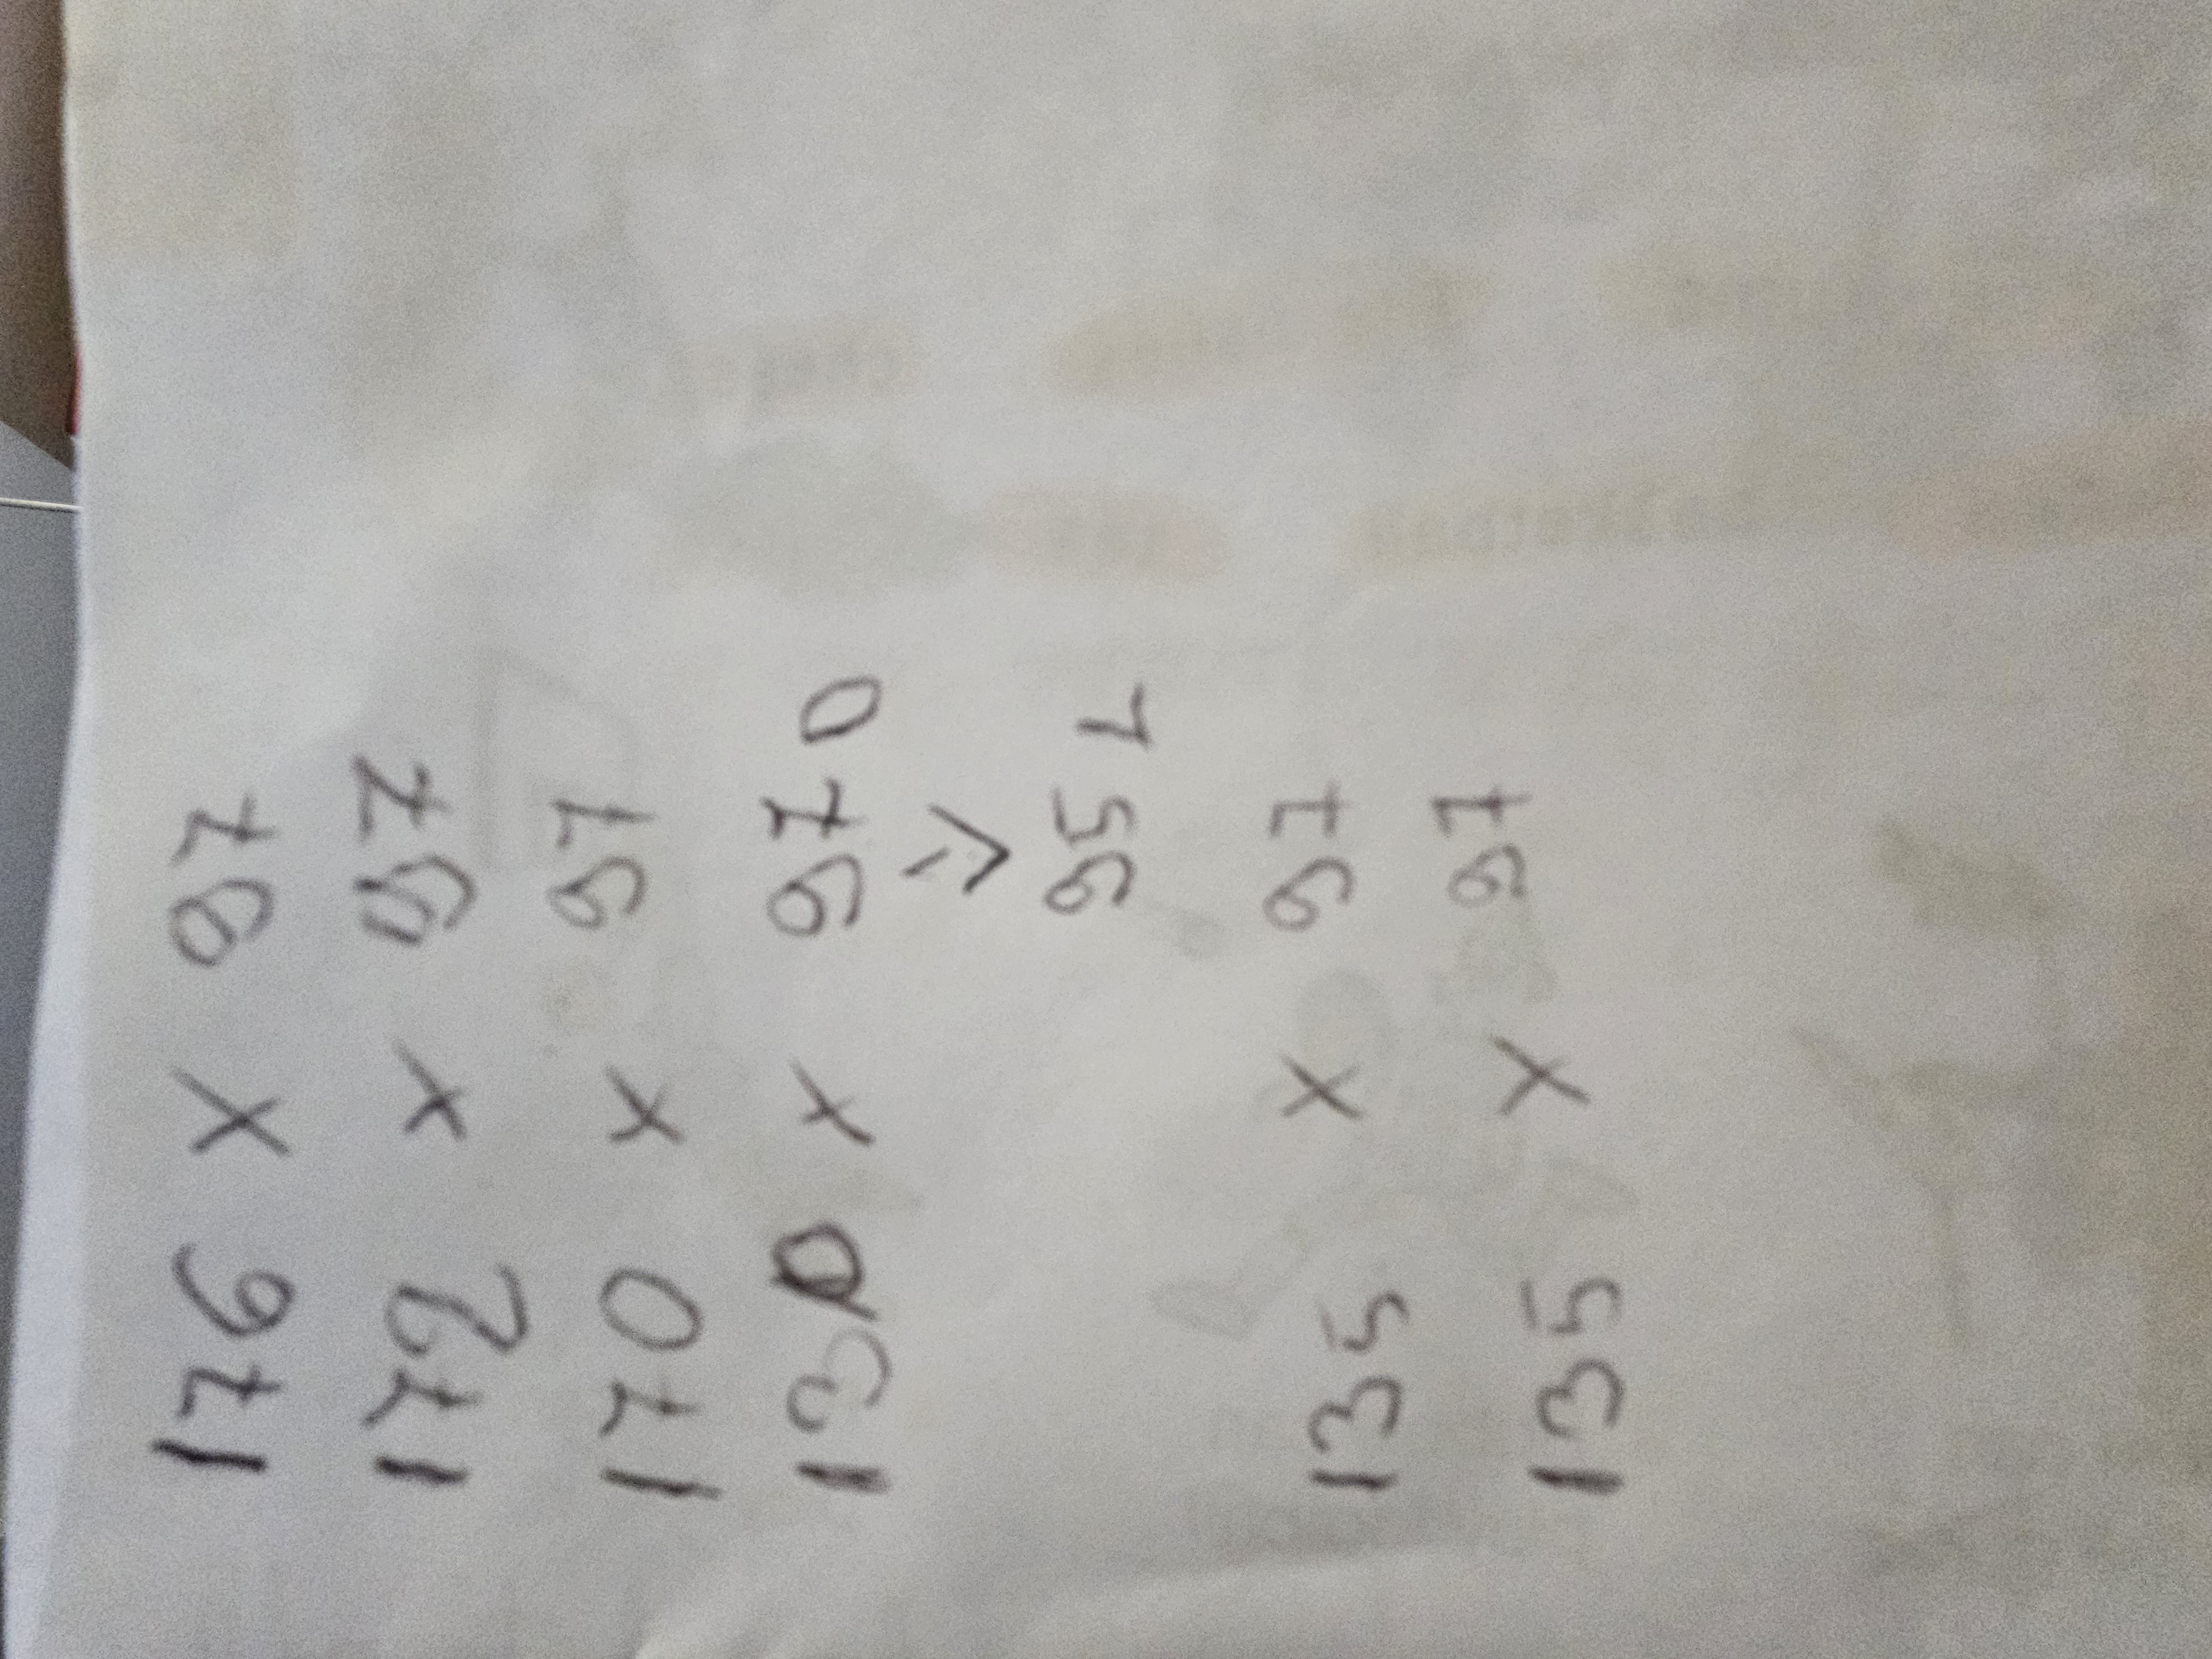 176 x 97
172 x 97
170 x 97
130 x 97 0
95 L
135 x 97
135 x 97